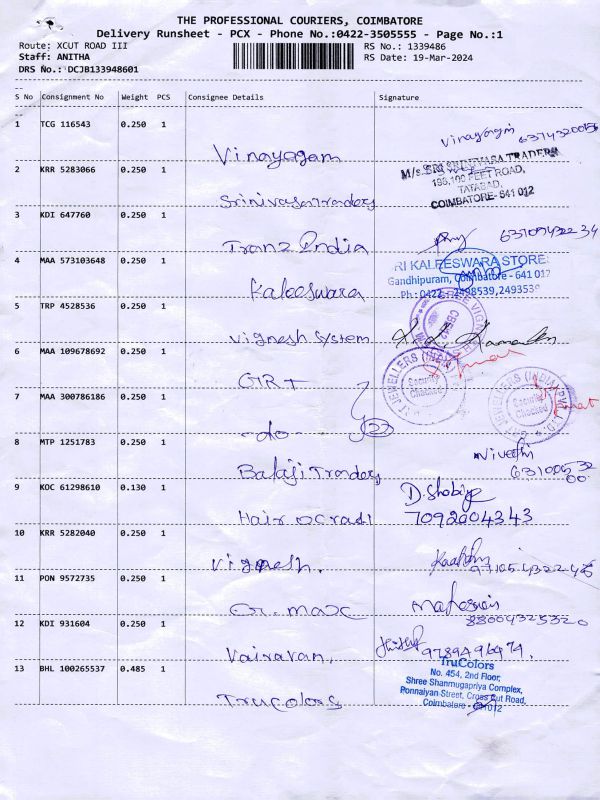 THE PROFESSIONAL COURIERS, COIMBATORE
Delivery Runsheet - PCX - Phone No.:0422-3505555 - Page No.:1
Route: XCUT ROAD III RS No.: 1339486
Staff: ANITHA RS Date: 19-Mar-2024
DRS No.: DCJB133948601
S No Consignment No Weight PCS Consignee Details Signature
1 TCG 116543 0.250 1
Vinayagam
2 KRR 5283066 0.250 1
M/s. SRI SRINIVASA TRADERS
FEET ROAD,
TATABAD,
COIMBATORE- 641 012
Srinivasa Traders
3 KDI 647760 0.250 1
Tranz India
4 MAA 573103648 0.250 1
SRI KALEESWARA STORES
Gandhipuram, Coimbatore - 641 012
Kaleeswara
5 TRP 4528536 0.250 1
Vignesh System
6 MAA 109678692 0.250 1
Security
Checked
GRT
7 MAA 300786186 1
Security
Checked
-do-
8 MTP 1251783 0.250 1
Balaji Traders
9 KOC 61298610 0.130 1
D. Shobiya
7092004343
10 KRR 5282040 0.250 1
Vignesh.
11 PON 9572735 0.250 1
12 KDI 931604 0.250 1
Vairavan.
13 BHL 100265537 0.485 1
TruColors
No. 454, 2nd Floor,
Shree Shanmugapriya Complex,
Ponnaiyan Street, Cross Cut Road,
Coimbatore -
Trucolors